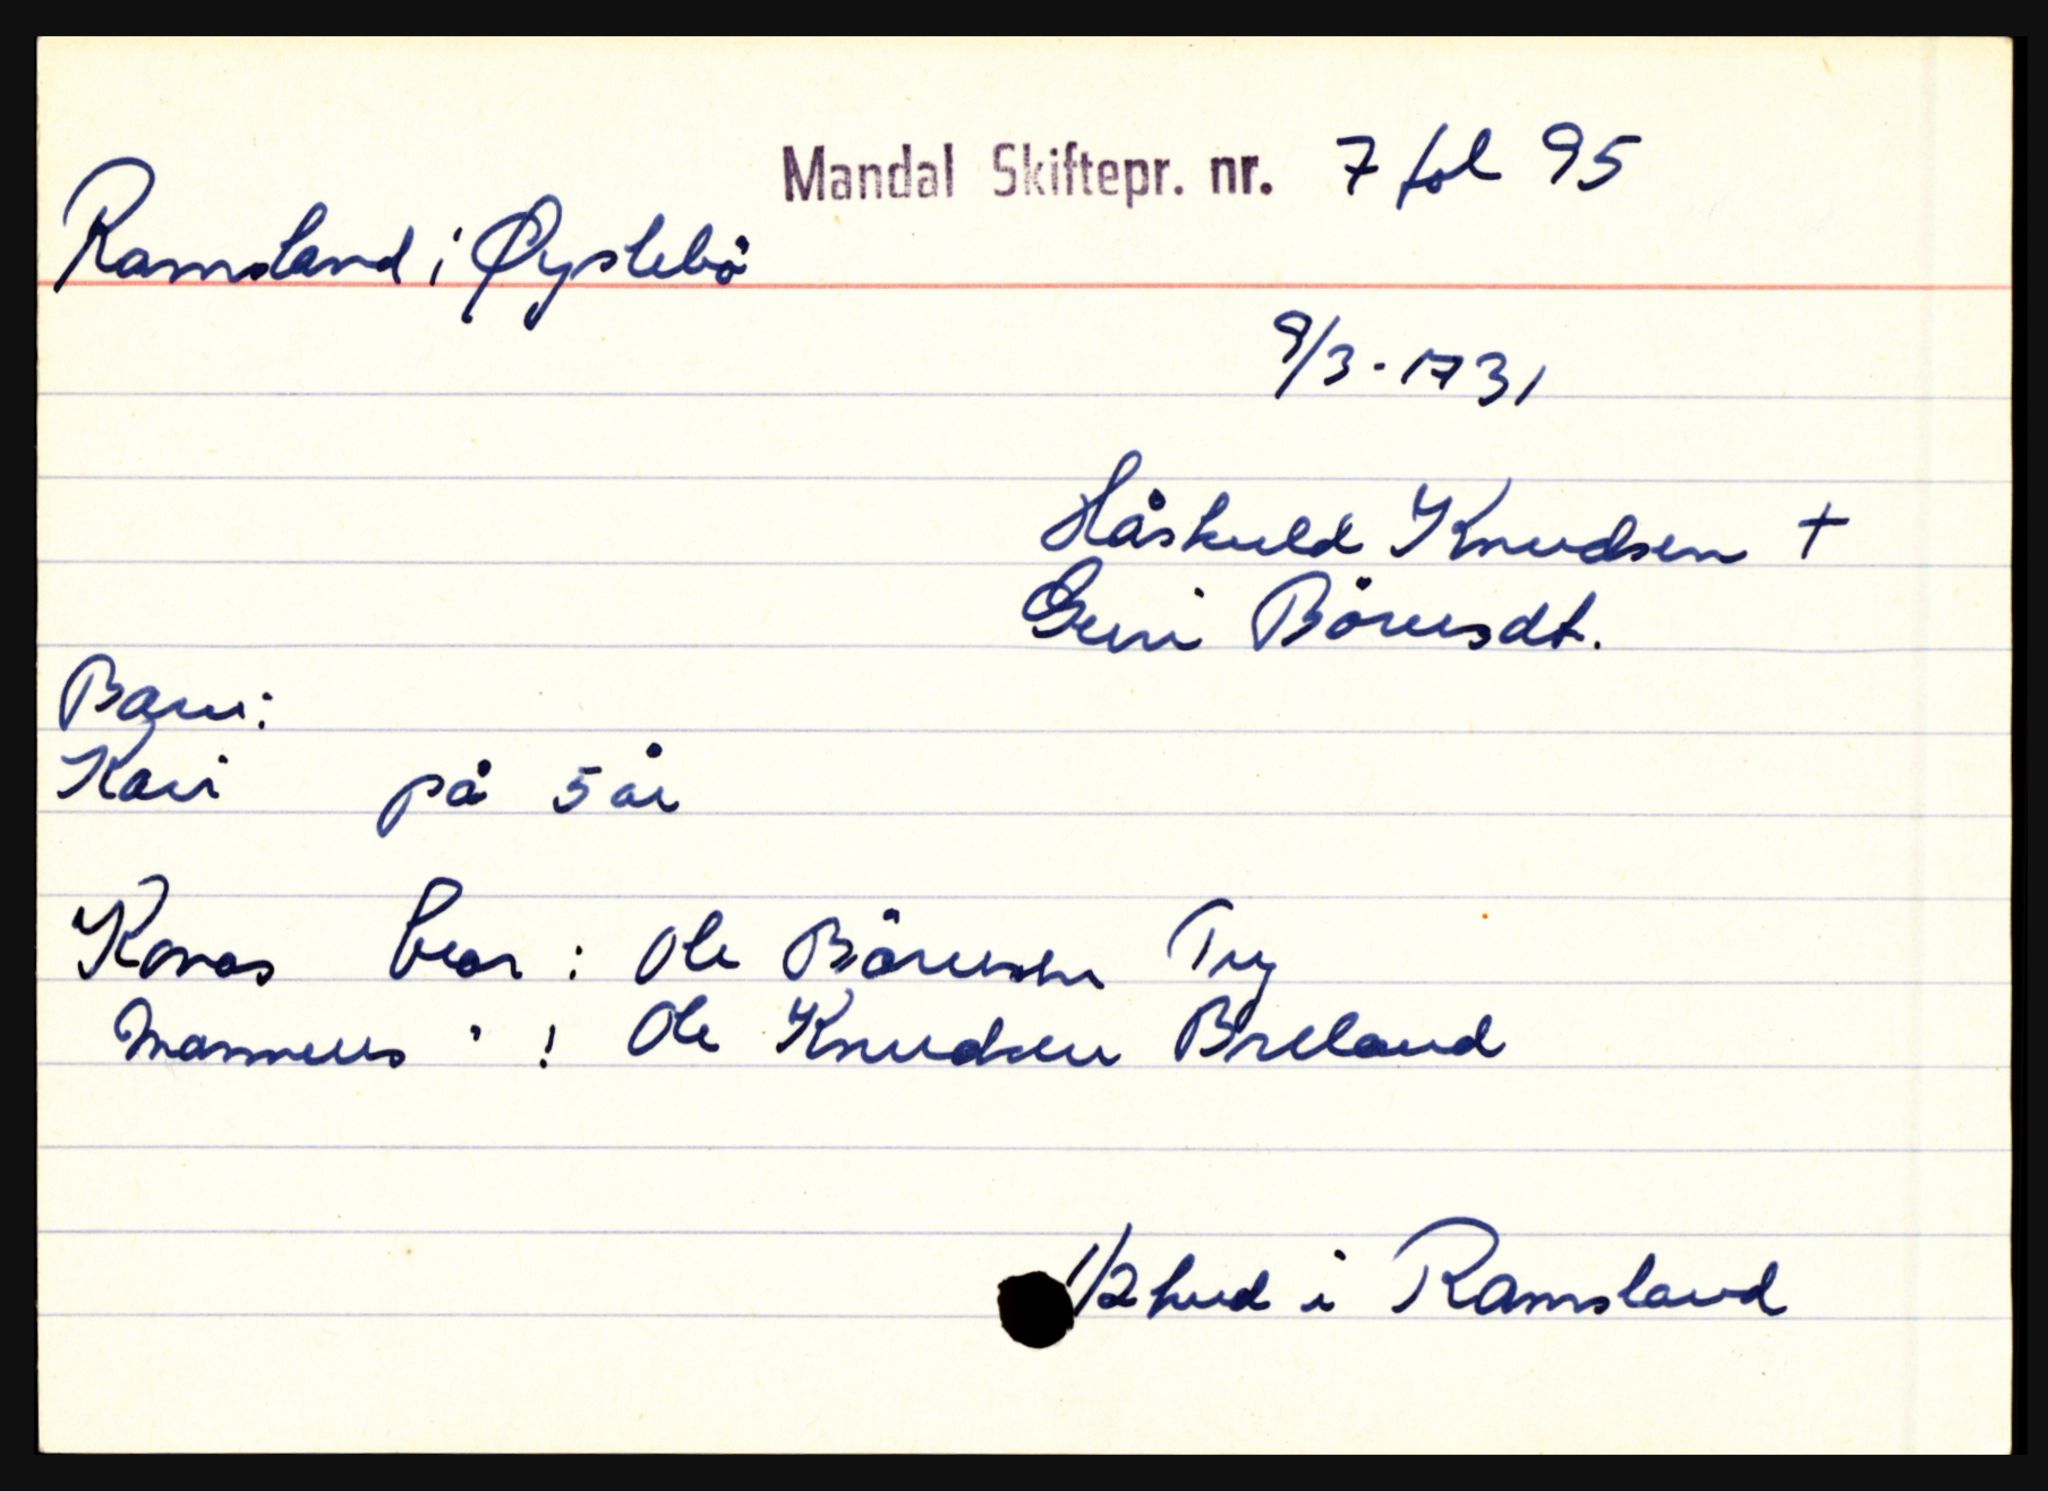 Mandal Skiftepr. nr. 7 fol 95
Ramsland i Øyslebö
9/3-1731
Håskuld Knudsen +
Guri Börresdt.
Barn:
Kari på 5 år
Konas bror: Ole Börresen Try
Mannens " : Ole Knudsen Breland
1/2 hud i Ramsland